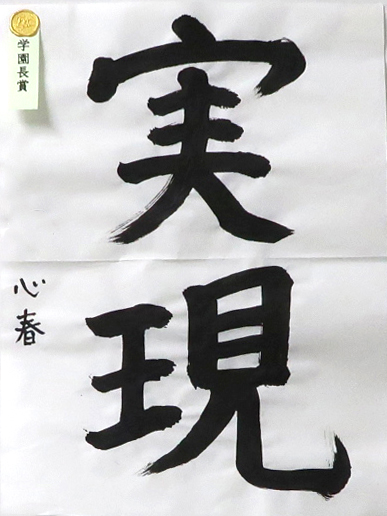 学園長賞
実現
心春